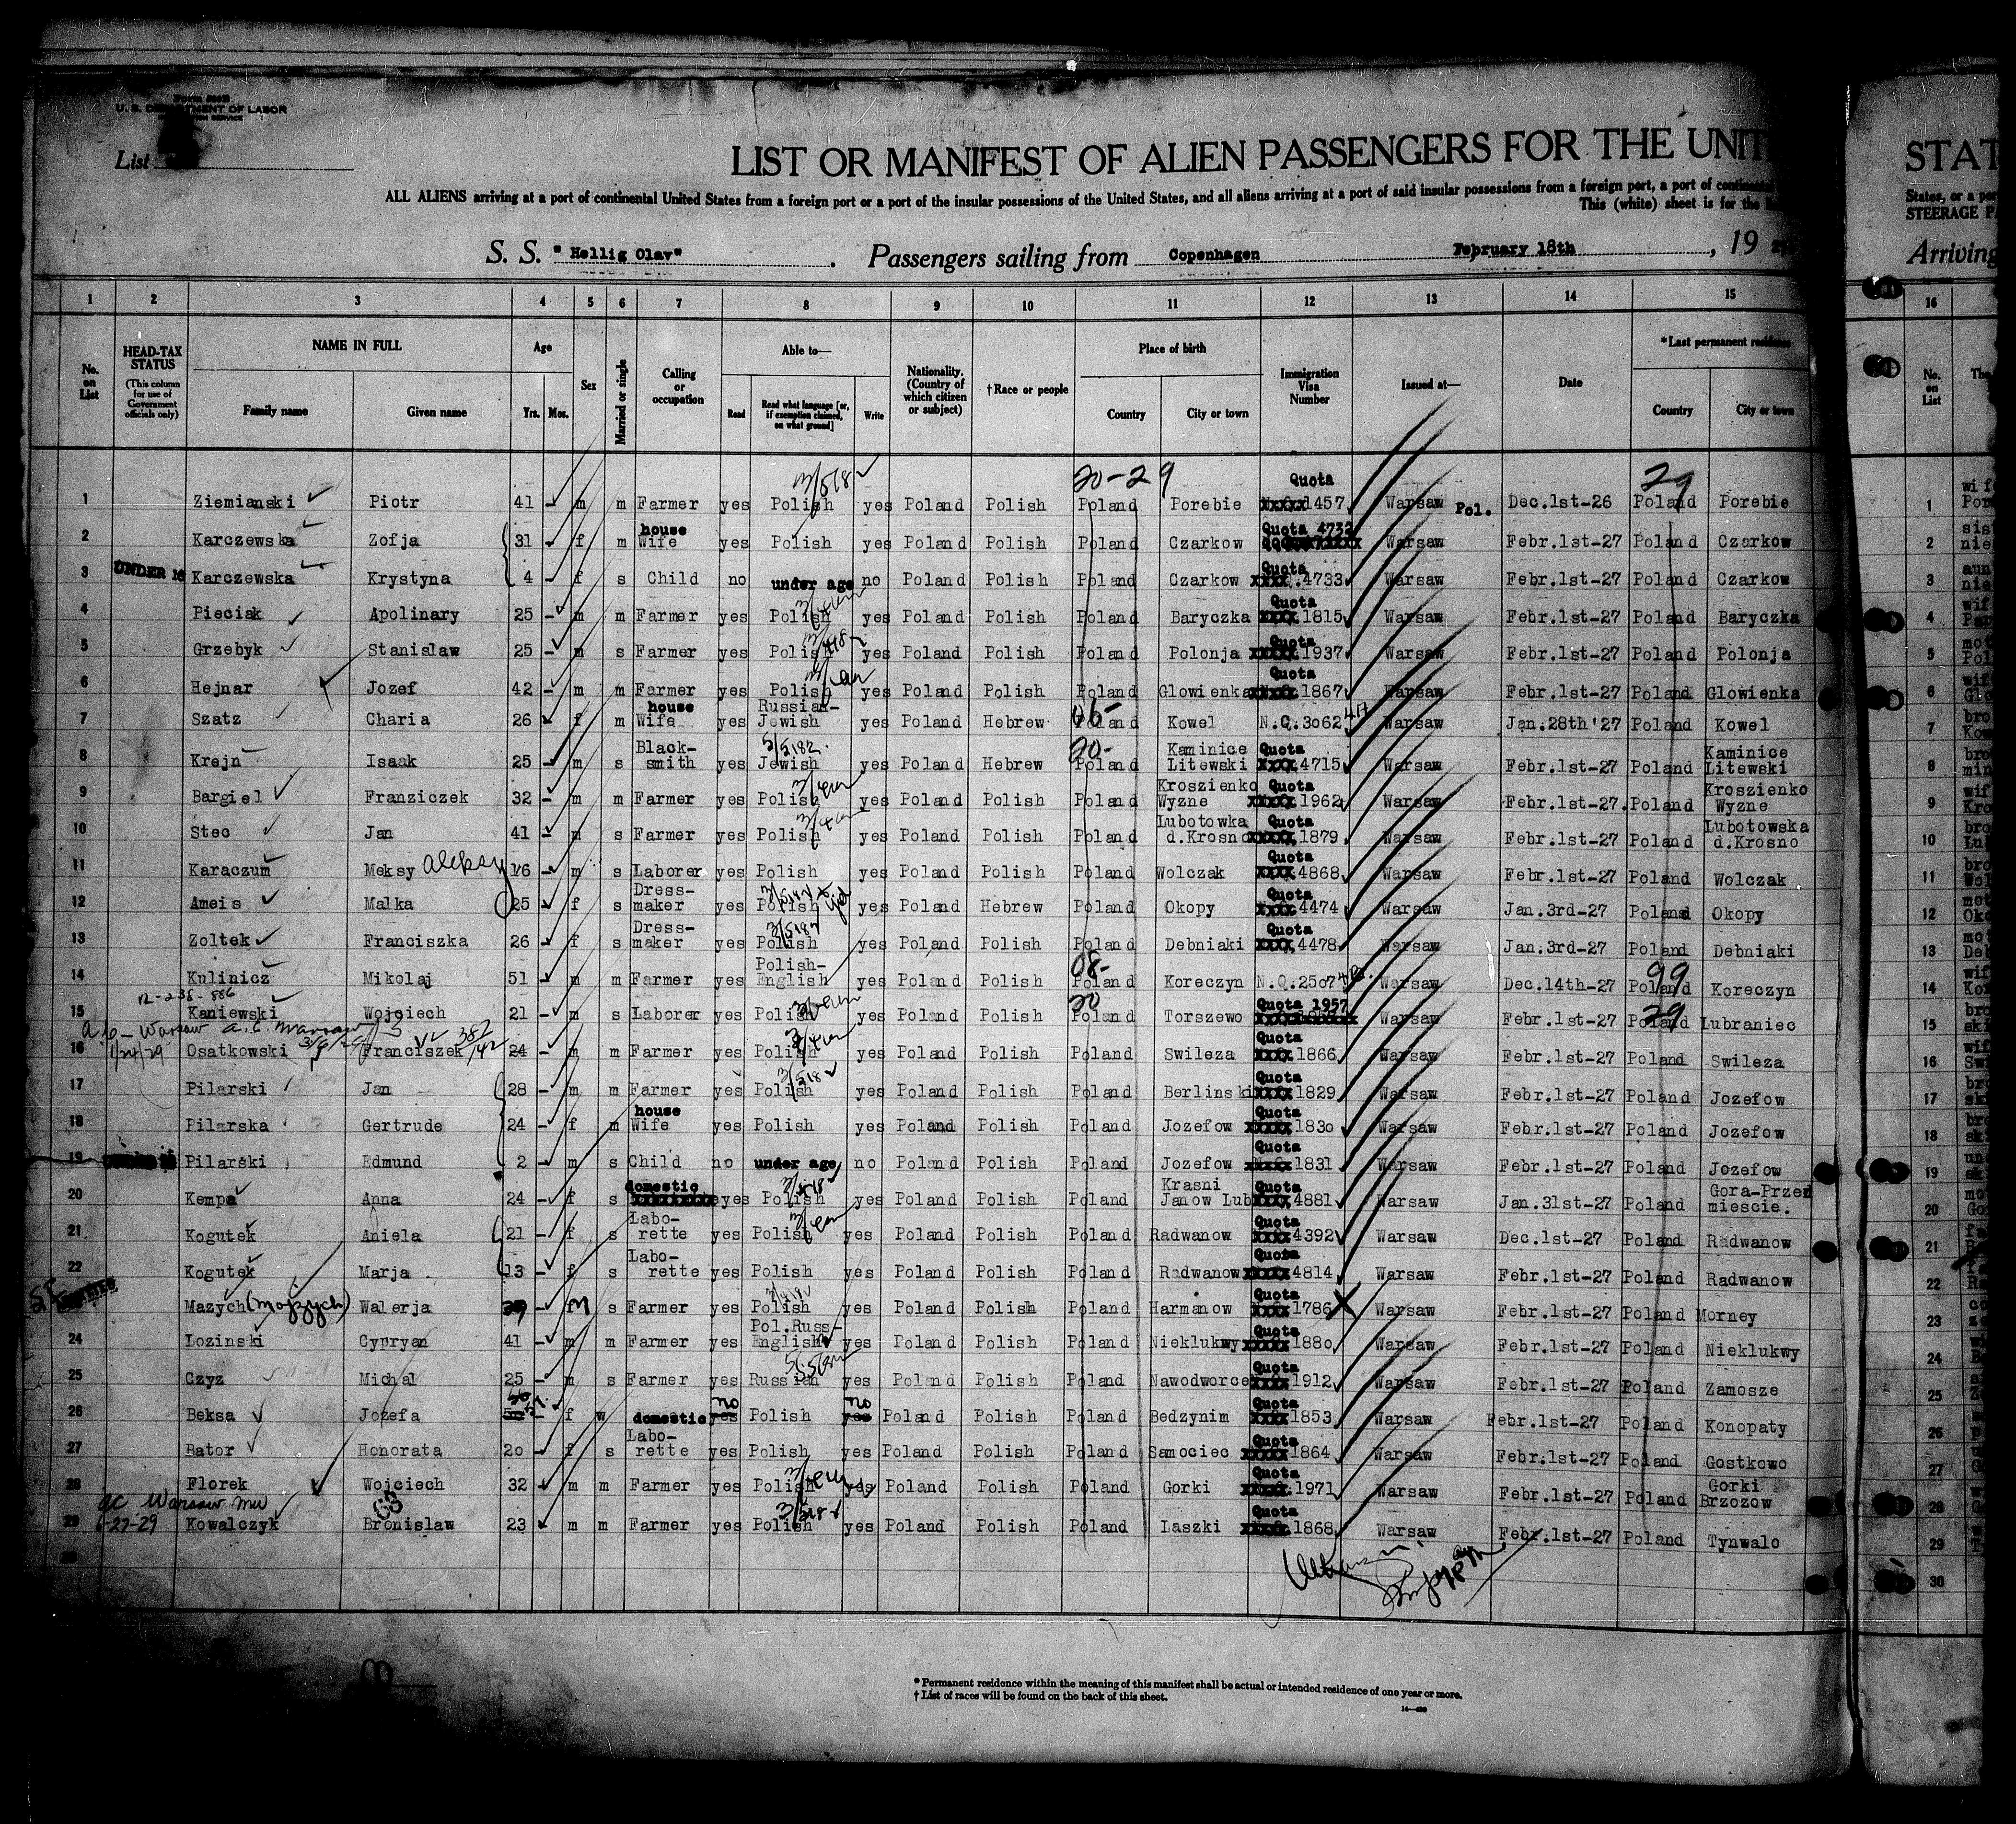 Form 500B
U. S. DEPARTMENT OF LABOR
List
LIST OR MANIFEST OF ALIEN PASSENGERS FOR THE UNIT
ALL ALIENS arriving at a port of continental United States from a foreign port or a port of the insular possessions of the United States, and all aliens arriving at a port of said insular possessions from a foreign port, a port of continental
This (white) sheet is for the
S. S. "Hellig Olav" Passengers sailing from Copenhagen February 18th, 19
1 2 3 4 5 6 7 8 9 10 11 12 13 14 15
No. on List HEAD-TAX STATUS (This column for use of Government officials only) NAME IN FULL Family name Given name Age Yrs. Mos. Sex Married or single Calling or occupation Able to— Read Read what language [or, if exemption claimed, on what ground] Write Nationality. (Country of which citizen or subject) †Race or people Place of birth Country City or town Immigration Visa Number Issued at— Date *Last permanent residence Country City or town
20-29 29
1 Ziemianski Piotr 41 - m m Farmer yes Polish yes Poland Polish Poland Porebie Quota 1457 Warsaw Pol. Dec.1st-26 Poland Porebie
2 Karczewska Zofja 31 - f m house Wife yes Polish yes Poland Polish Poland Czarkow Quota 4732 Warsaw Febr.1st-27 Poland Czarkow
3 UNDER 16 Karczewska Krystyna 4 - f s Child no under age no Poland Polish Poland Czarkow Quota 4733 Warsaw Febr.1st-27 Poland Czarkow
4 Pieciak Apolinary 25 - m m Farmer yes Polish yes Poland Polish Poland Baryczka Quota 1815 Warsaw Febr.1st-27 Poland Baryczka
5 Grzebyk Stanislaw 25 - m s Farmer yes Polish yes Poland Polish Poland Polonja Quota 1937 Warsaw Febr.1st-27 Poland Polonja
6 Hejnar Jozef 42 - m m Farmer yes Polish yes Poland Polish Poland Glowienka Quota 1867 Warsaw Febr.1st-27 Poland Glowienka
7 Szatz Charia 26 - f m house Wife yes Russian-Jewish yes Poland Hebrew Poland Kowel N.Q.3062 Warsaw Jan.28th'27 Poland Kowel
8 Krejn Isaak 25 - m s Black-smith yes Jewish yes Poland Hebrew Poland Kaminice Litewski Quota 4715 Warsaw Febr.1st-27 Poland Kaminice Litewski
9 Bargiel Franziczek 32 - m m Farmer yes Polish yes Poland Polish Poland Kroszienko Wyzne Quota 1962 Warsaw Febr.1st-27 Poland Kroszienko Wyzne
10 Stec Jan 41 - m s Farmer yes Polish yes Poland Polish Poland Lubotowka d.Krosno Quota 1879 Warsaw Febr.1st-27 Poland Lubotowska d.Krosno
11 Karaczum Meksy Aleksy 16 - m s Laborer yes Polish yes Poland Polish Poland Wolczak Quota 4868 Warsaw Febr.1st-27 Poland Wolczak
12 Ameis Malka 25 - f s Dress-maker yes Polish yes Poland Hebrew Poland Okopy Quota 4474 Warsaw Jan.3rd-27 Poland Okopy
13 Zoltek Franciszka 26 - f s Dress-maker yes Polish yes Poland Polish Poland Debniaki Quota 4478 Warsaw Jan.3rd-27 Poland Debniaki
14 Kulinicz Mikolaj 51 - m m Farmer yes Polish-English yes Poland Polish Poland Koreczyn N.Q.2507 Warsaw Dec.14th-27 Poland Koreczyn
12-238-886
15 Kaniewski Wojciech 21 - m s Laborer yes Polish yes Poland Polish Poland Torszewo Quota 1957 Warsaw Febr.1st-27 Poland Lubraniec
16 Osatkowski Franciszek 24 - m m Farmer yes Polish yes Poland Polish Poland Swileza Quota 1866 Warsaw Febr.1st-27 Poland Swileza
17 Pilarski Jan 28 - m m Farmer yes Polish yes Poland Polish Poland Berlinski Quota 1829 Warsaw Febr.1st-27 Poland Jozefow
18 Pilarska Gertrude 24 - f m house Wife yes Polish yes Poland Polish Poland Jozefow Quota 1830 Warsaw Febr.1st-27 Poland Jozefow
19 Pilarski Edmund 2 - m s Child no under age no Poland Polish Poland Jozefow Quota 1831 Warsaw Febr.1st-27 Poland Jozefow
20 Kempa Anna 24 - f s domestic yes Polish yes Poland Polish Poland Krasni Janow Lub Quota 4881 Warsaw Jan.31st-27 Poland Gora-Przed miescie.
21 Kogutek Aniela 21 - f s Labo-rette yes Polish yes Poland Polish Poland Radwanow Quota 4392 Warsaw Dec.1st-27 Poland Radwanow
22 Kogutek Marja 13 - f s Labo-rette yes Polish yes Poland Polish Poland Radwanow Quota 4814 Warsaw Febr.1st-27 Poland Radwanow
Mazych (Mojzych) Walerja - m s Farmer yes Polish yes Poland Polish Poland Harmanow Quota 1786 Warsaw Febr.1st-27 Poland Morney
24 Lozinski Cypryan 41 - m m Farmer yes Pol.Russ-English yes Poland Polish Poland Nieklukwy Quota 1880 Warsaw Febr.1st-27 Poland Nieklukwy
25 Czyz Michal 25 - m s Farmer yes Russian yes Poland Polish Poland Nawodworce Quota 1912 Warsaw Febr.1st-27 Poland Zamosze
26 Beksa Jozefa - f w domestic no Polish no Poland Polish Poland Bedzynim Quota 1853 Warsaw Febr.1st-27 Poland Konopaty
27 Bator Honorata 20 - f s Labo-rette yes Polish yes Poland Polish Poland Samociec Quota 1864 Warsaw Febr.1st-27 Poland Gostkowo
28 Florek Wojciech 32 - m m Farmer yes Polish yes Poland Polish Poland Gorki Quota 1971 Warsaw Febr.1st-27 Poland Gorki Brzozow
29 Kowalczyk Bronislaw 23 - m m Farmer yes Polish yes Poland Polish Poland Laszki Quota 1868 Warsaw Febr.1st-27 Poland Tynwalo
30
*Permanent residence within the meaning of this manifest shall be actual or intended residence of one year or more.
†List of races will be found on the back of this sheet.
STAT
States, or a por
STEERAGE P
Arriving
16
No. on List